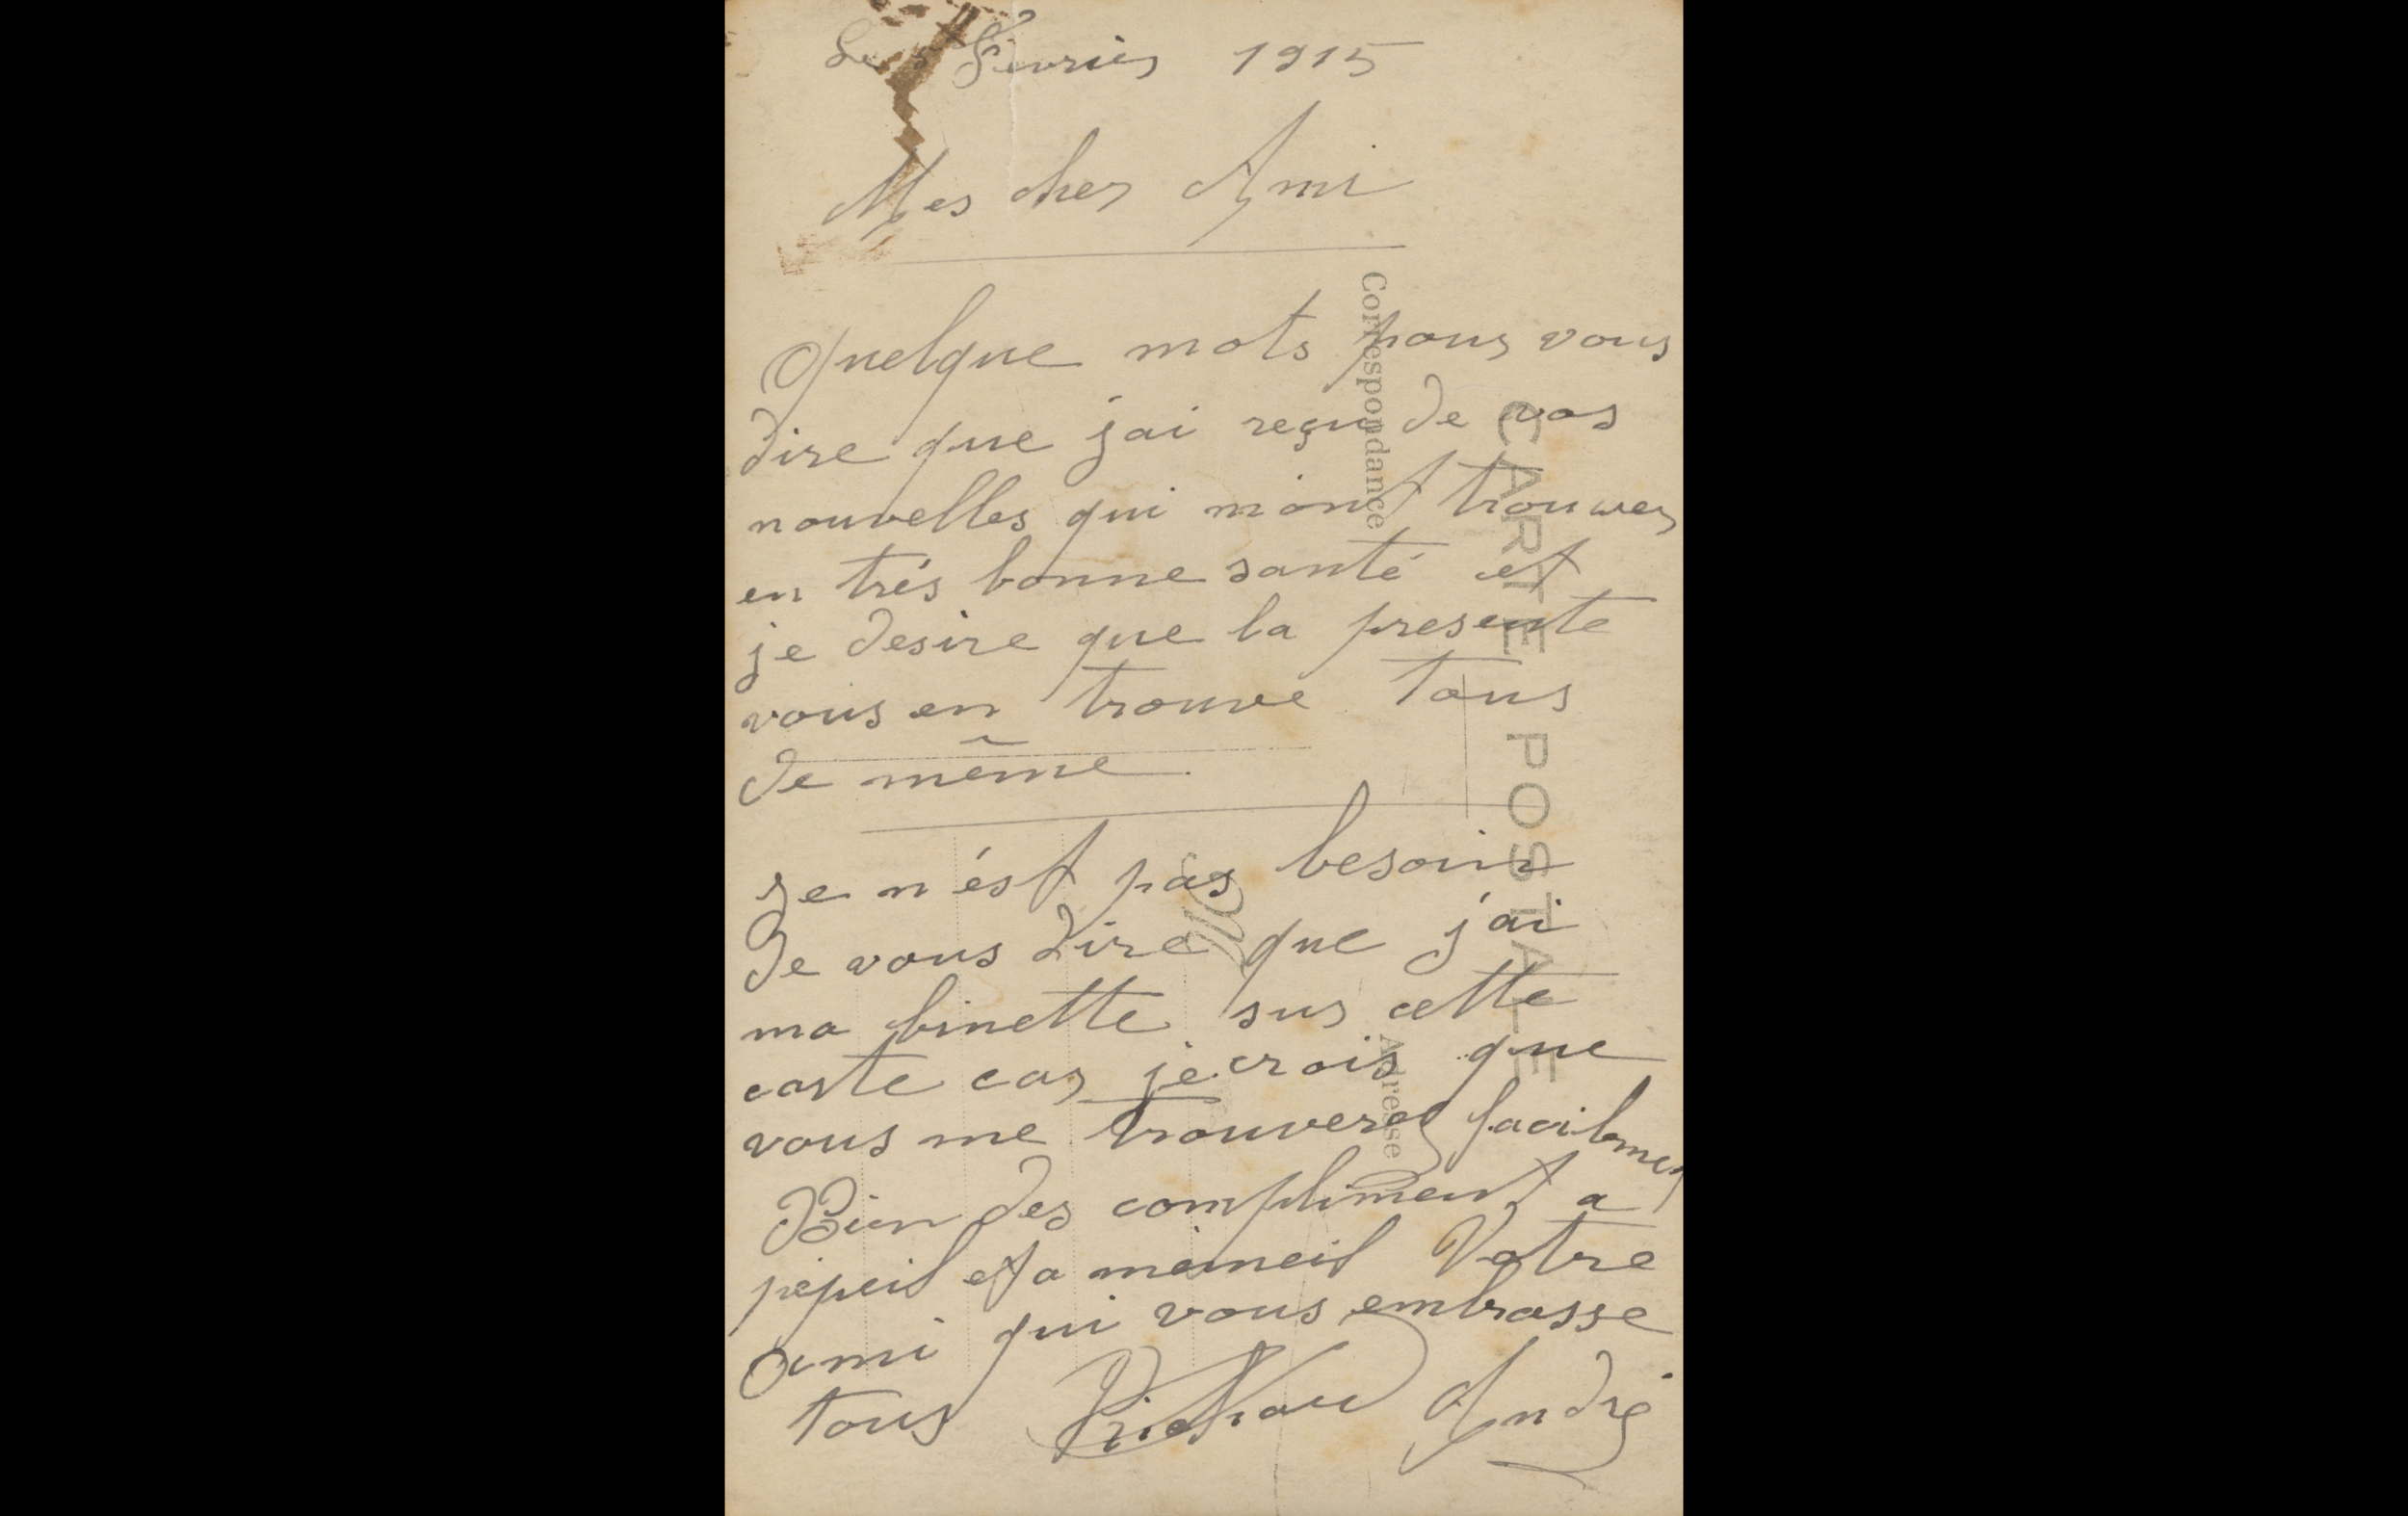 Le 5 Fevrier 1915
Mes cher Ami
Quelque mots pour vous
dire que j'ai reçu de vos
nouvelles qui m'ont trouver
en trés bonne santé et
je desire que la presente
vous en trouve tous
de même.
Je n'ést pas besoin
de vous dire que j'ai
ma binette sur cette
carte car je crois que
vous me trouverez facilmen
Bien des compliment a
pepeil et a memeil Votre
ami qui vous embrasse
tous André
Correspondance
CARTE POSTALE
M
Adresse